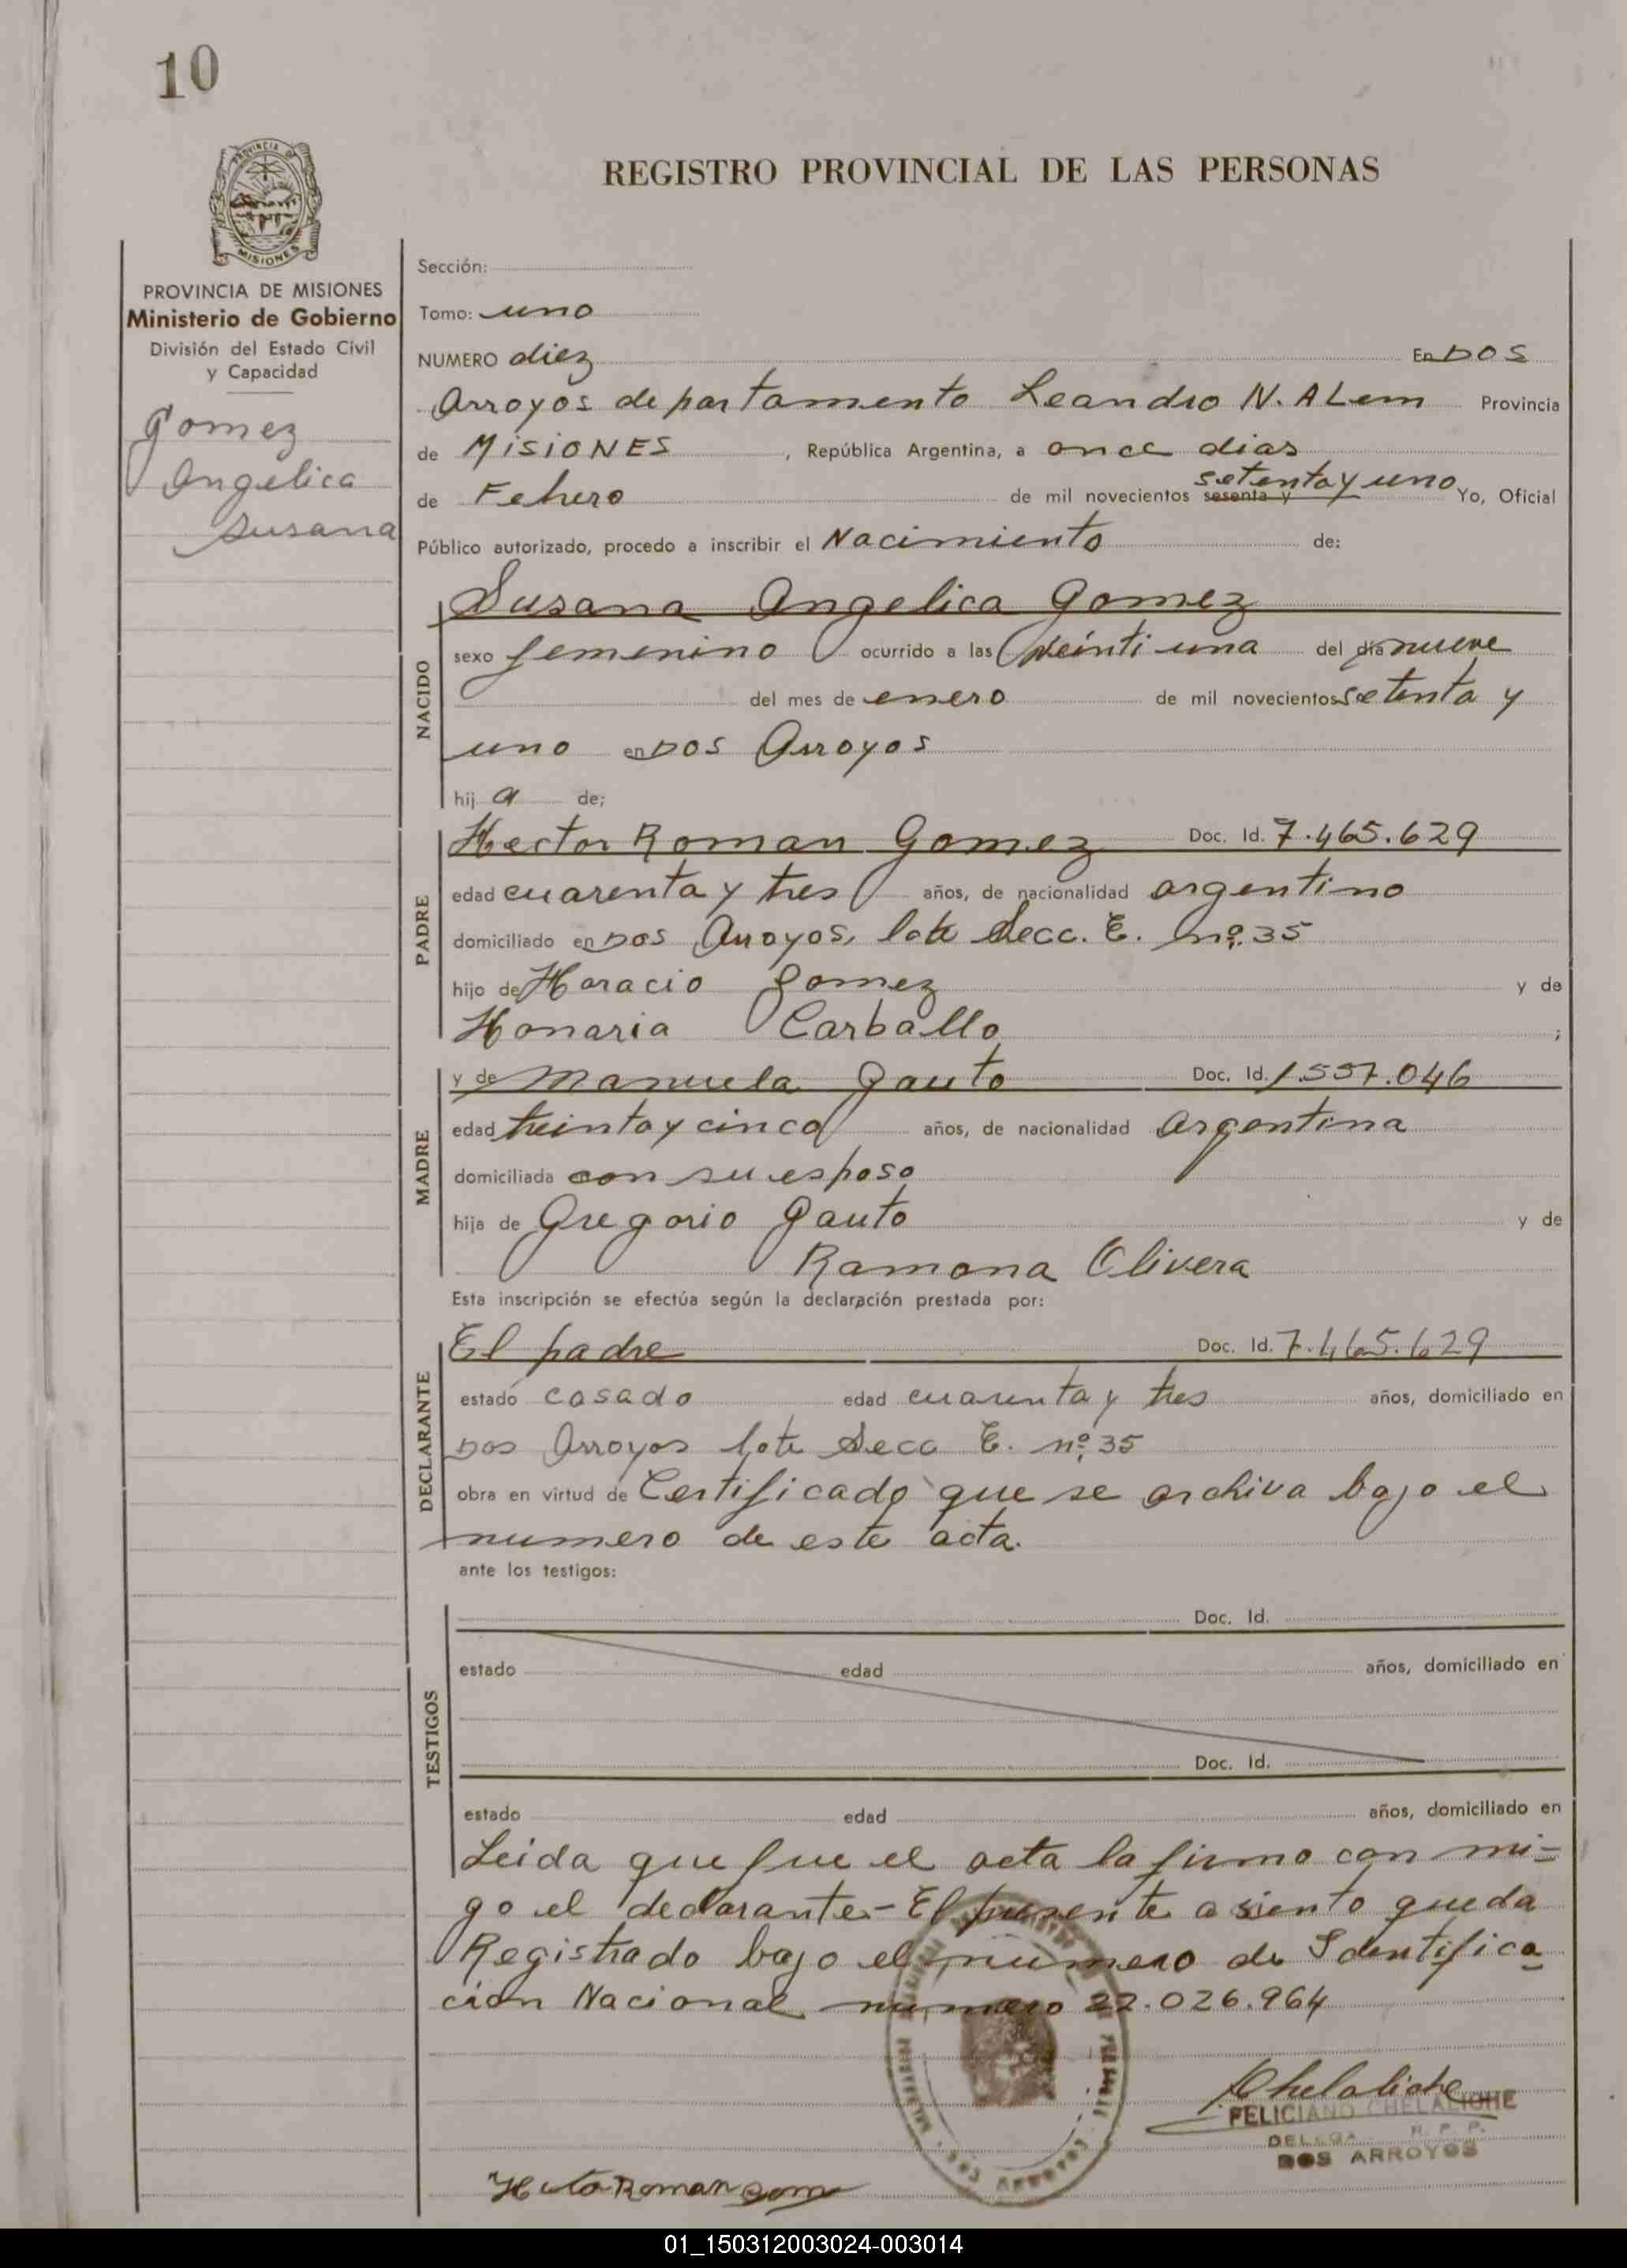 10
PROVINCIA DE
MISIONES
REGISTRO PROVINCIAL DE LAS PERSONAS
PROVINCIA DE MISIONES
Ministerio de Gobierno
División del Estado Civil
y Capacidad
Gomez
Angelica
Susana
Sección:
Tomo: uno
NUMERO diez En DOS
Arroyos departamento Leandro N. ALem Provincia
de MiSiONES, República Argentina, a once dias
de Febrero de mil novecientos sesenta y setenta y uno Yo, Oficial
Público autorizado, procedo a inscribir el Nacimiento de:
NACIDO
Susana Angelica Gomez
sexo femenino ocurrido a las veinti una del día nueve
del mes de enero de mil novecientos setenta y
uno en DOS Arroyos
hij a de;
PADRE
Hector Roman Gomez Doc. Id. 7.465.629
edad cuarenta y tres años, de nacionalidad argentino
domiciliado en Dos Arroyos, lote Secc. E. nº. 35
hijo de Horacio Gomez y de
Honaria Carballo ;
MADRE
y de Manuela Gauto Doc. Id. 1.557.046
edad treinta y cinco años, de nacionalidad argentina
domiciliada con su esposo
hija de Gregorio Gauto y de
Ramona Olivera
Esta inscripción se efectúa según la declaración prestada por:
DECLARANTE
El padre Doc. Id. 7.465.629
estado casado edad cuarenta y tres años, domiciliado en
Dos Arroyos lote Secc E. nº. 35
obra en virtud de Certificado que se archiva bajo el
numero de este acta.
ante los testigos:
TESTIGOS
Doc. Id.
estado edad años, domiciliado en
Doc. Id.
estado edad años, domiciliado en
Leida que fue el acta la firmo con mi=
go el declarante.- El presente asiento queda
Registrado bajo el numero de Identifica
cion Nacional numero 22.026.964
Chelaliche
FELICIANO CHELALICHE
R. P. P.
DOS ARROYOS
Hector Roman Gom
01_150312003024-003014